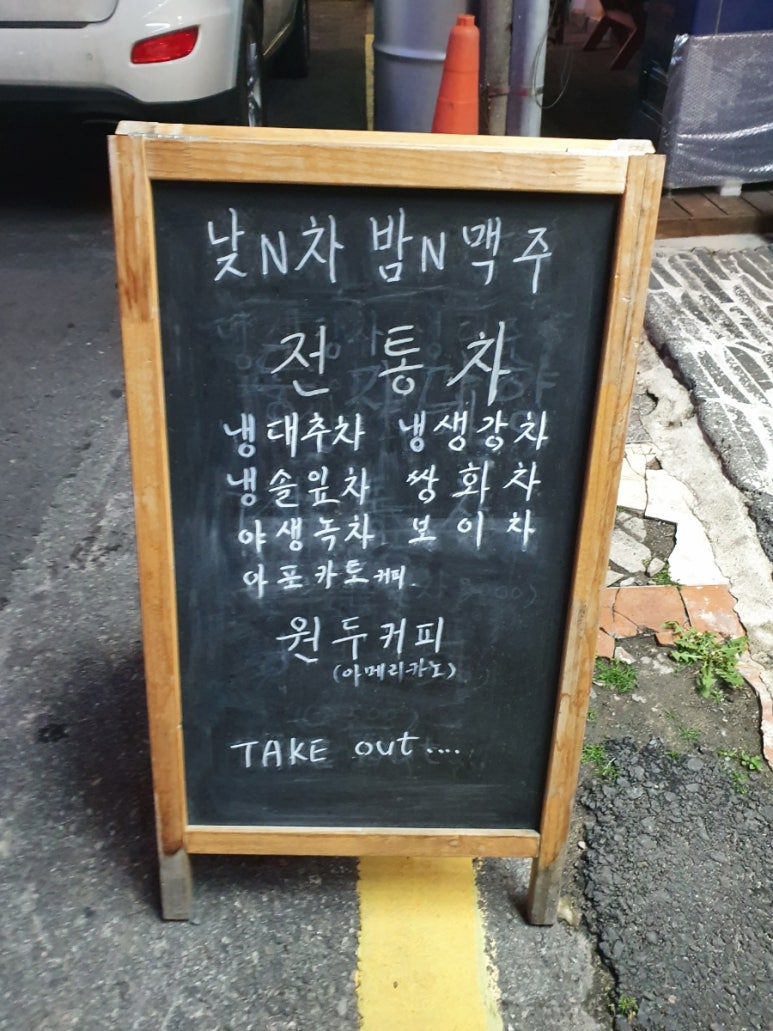 낮N차 밤N맥주
전통차
냉대추차 냉생강차
냉솔잎차 쌍화차
야생녹차 보이차
아포카토커피.
원두커피
(아메리카노)
TAKE out....